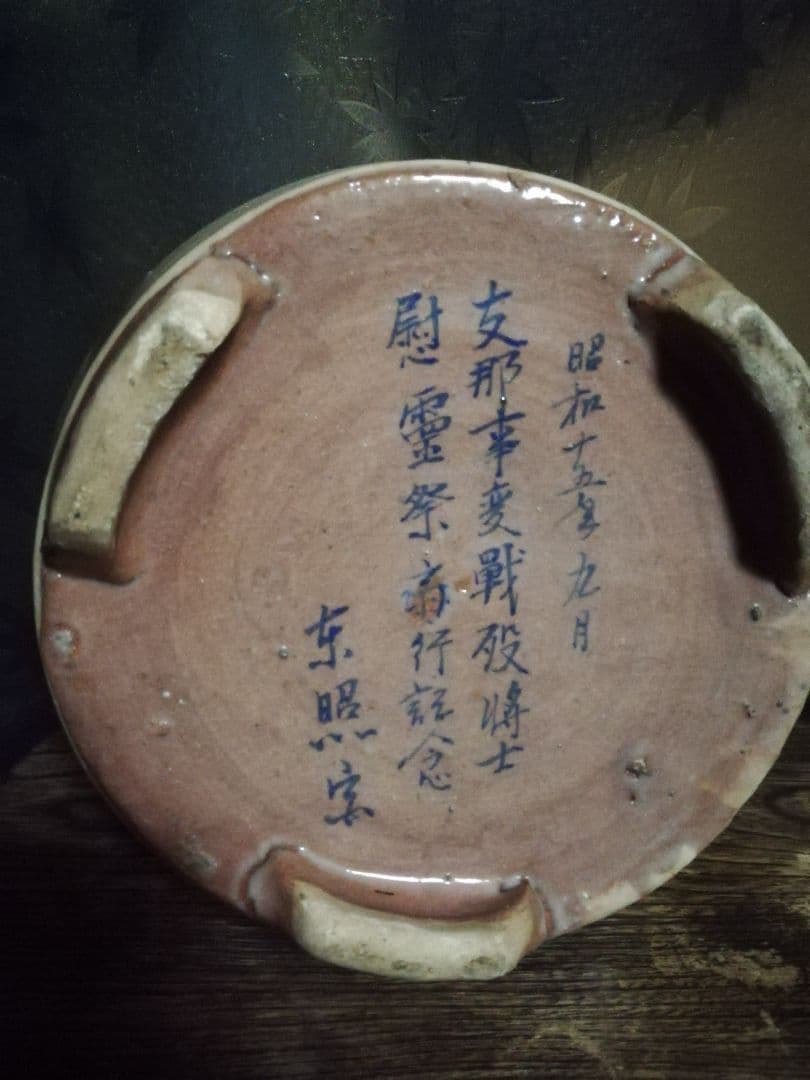 昭和十五年九月
支那事变戰殁將士
慰靈祭斎行記念
东照宮